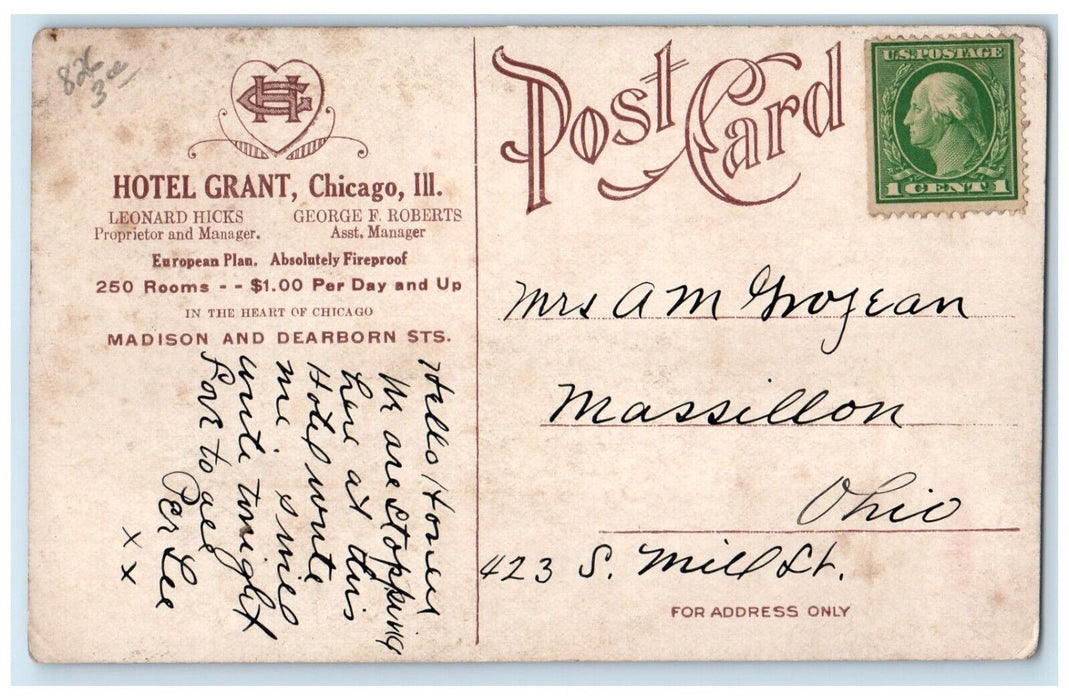 826
HGC
HOTEL GRANT, Chicago, Ill.
LEONARD HICKS
Proprietor and Manager.
GEORGE F. ROBERTS
Asst. Manager
European Plan. Absolutely Fireproof
250 Rooms - - $1.00 Per Day and Up
IN THE HEART OF CHICAGO
MADISON AND DEARBORN STS.
Hello Honey
We are stopping
here at this
Hotel write
me
write tonight
Love to all
Per Lee
x x
Post Card
U.S. POSTAGE
1 CENT 1
Mrs A M Grojean
Massillon
Ohio
423 S. Mill St.
FOR ADDRESS ONLY